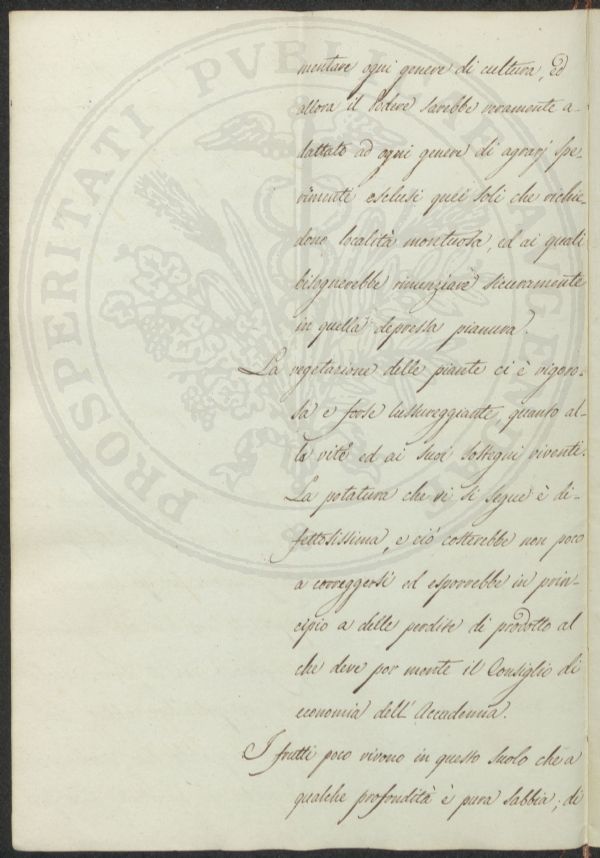 mentare ogni genere di cultura, ed
allora il Podere sarebbe veramente a-
dattato ad ogni genere di agrarj spe-
rimenti esclusi quei soli che richie-
dono località montuosa, ed ai quali
bisognerebbe rinunziare sicuramente
in quella depressa pianura.
La vegetazione delle piante ci è vigoro-
sa e forse lussureggiante, quanto al-
la vite ed ai suoi sostegni viventi.
La potatura che vi si segue è di-
fettosissima, e ciò costerebbe non poco
a correggersi ed esporrebbe in prin-
cipio a delle perdite di prodotto al
che deve por mente il Consiglio di
economia dell'Accademia.
I frutti poco vivono in questo suolo che a
qualche profondità è pura sabbia; di
PROSPERITATI PVBLICAE AVGENDAE